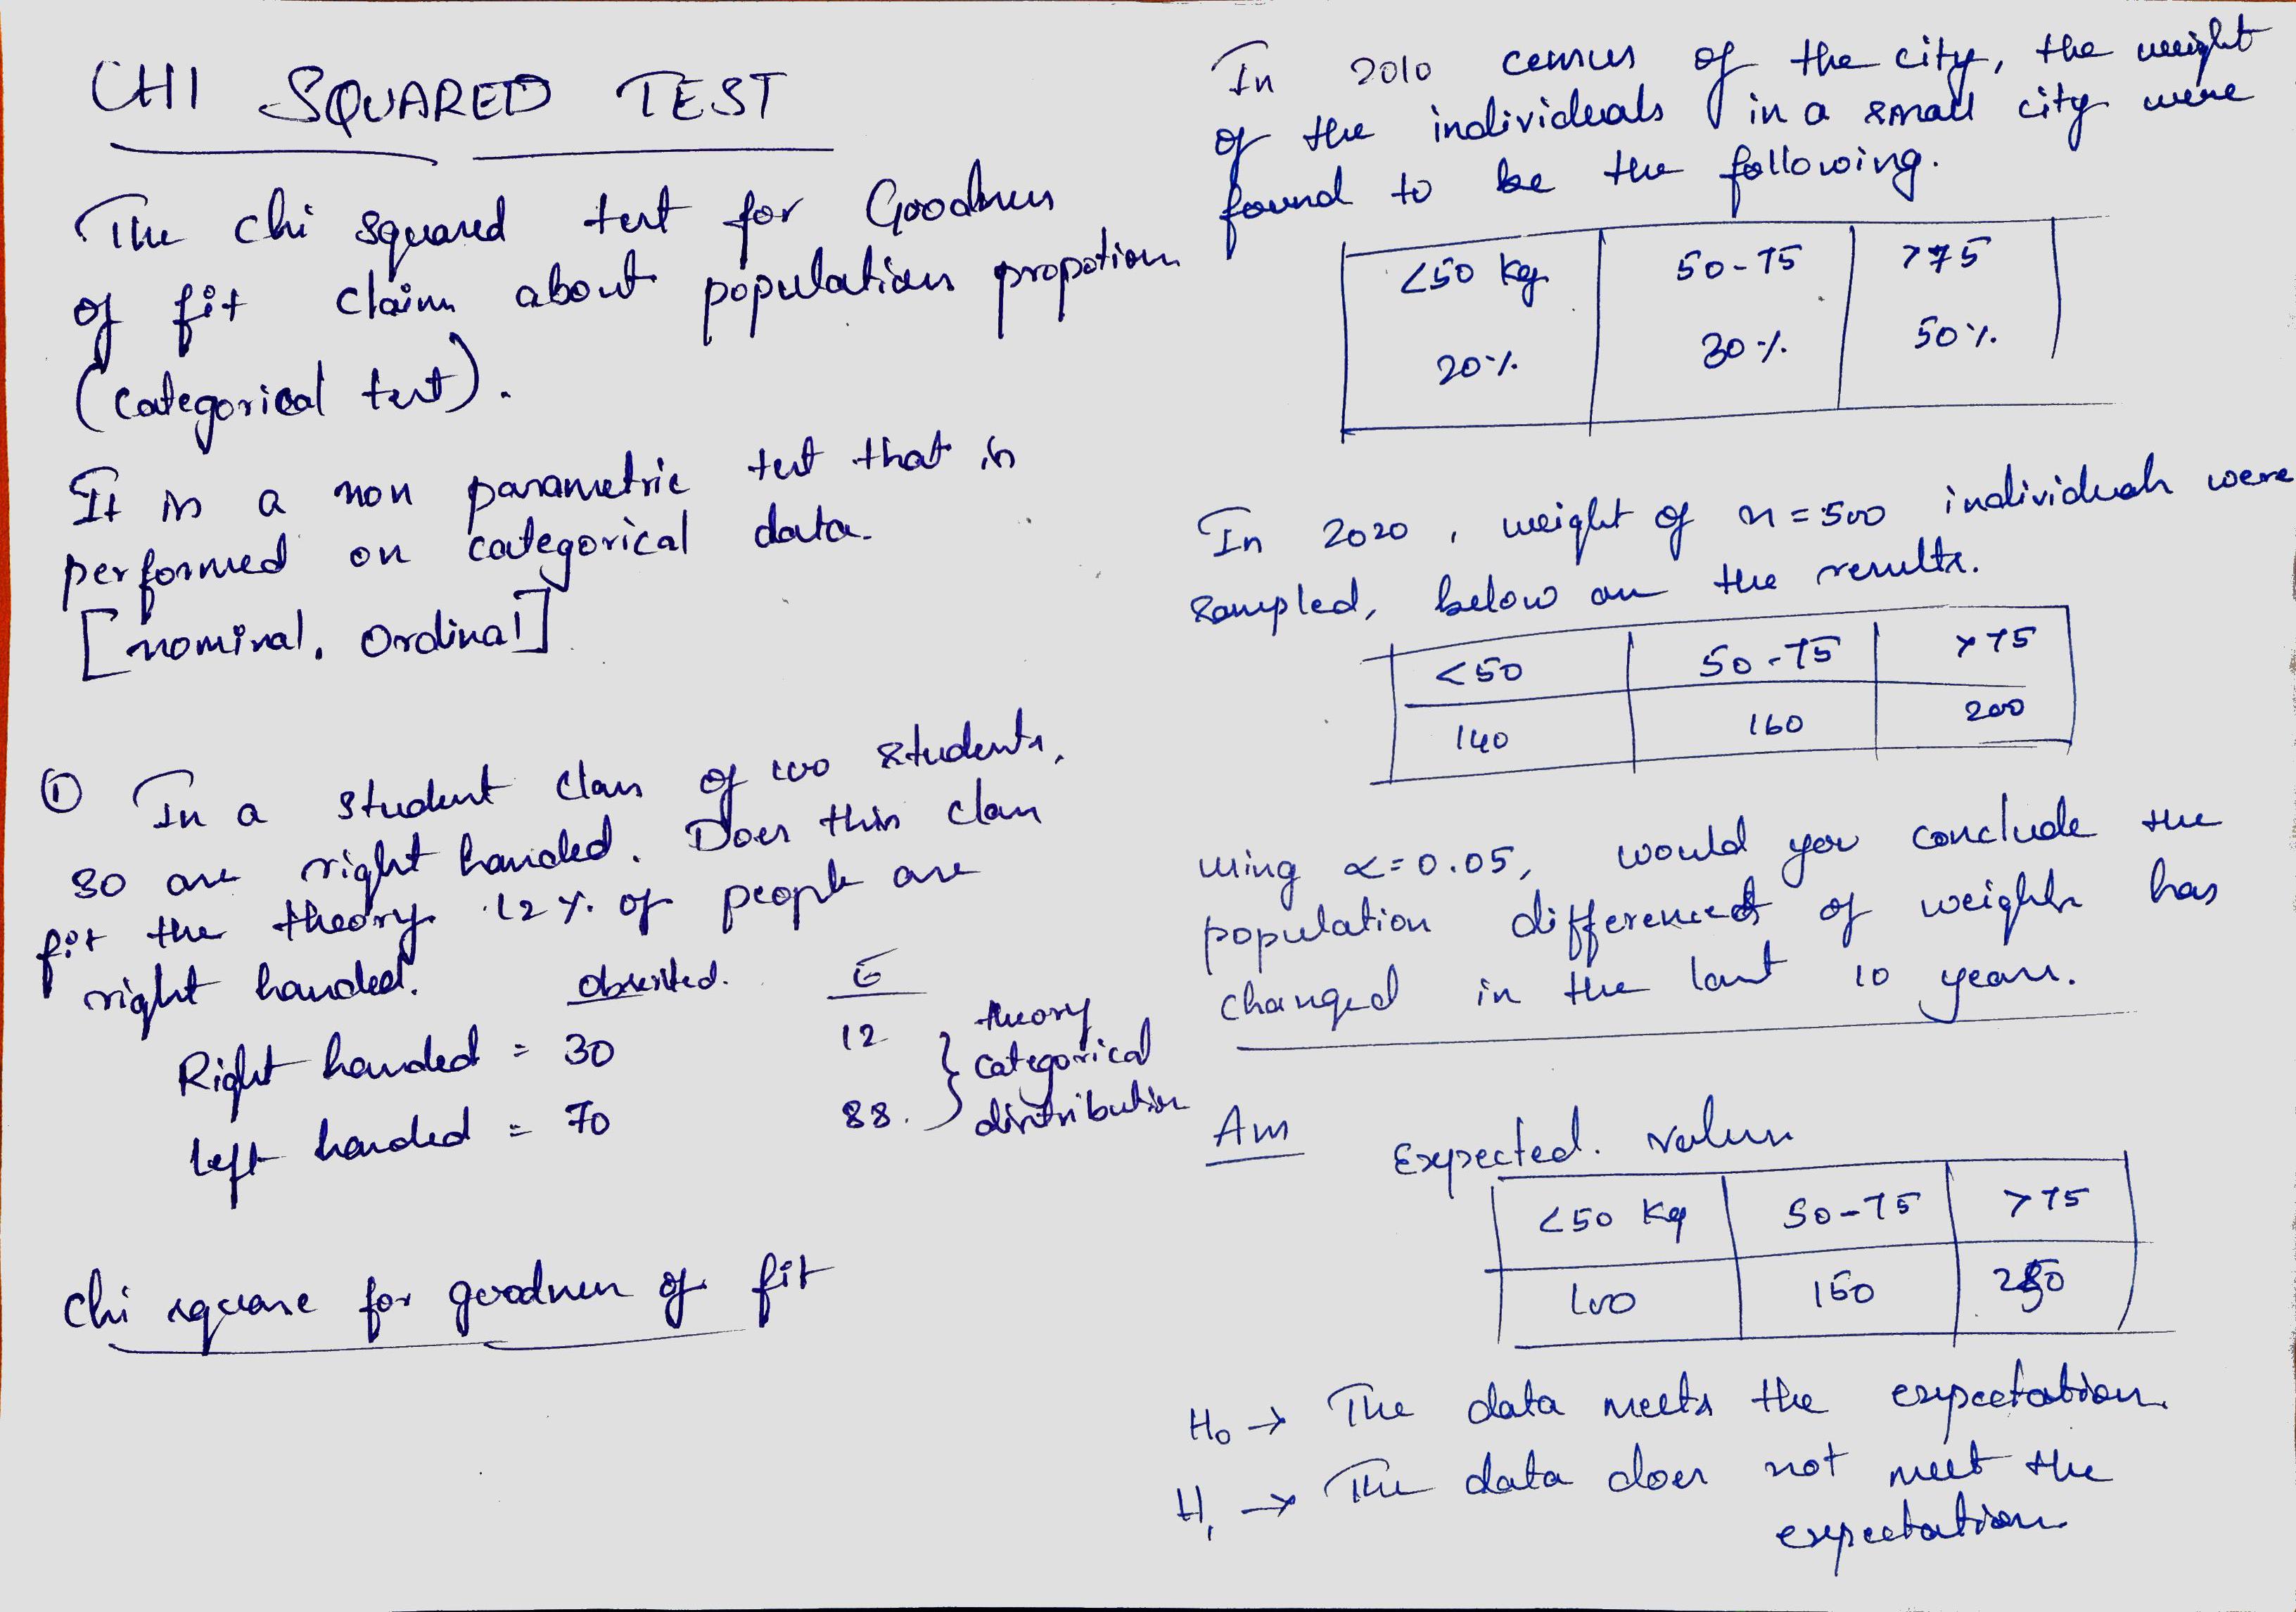 CHI SQUARED TEST
The chi squared test for Goodness
of fit claim about population propotion
(categorical test).
It is a non parametric test that is
performed on categorical data.
[nominal, Ordinal]
① In a student class of 100 students,
30 are right handed. Does this class
fit the theory 12% of people are
right handed.
Observed. E
Right handed = 30 12
Left handed = 70 88.
} theory
categorical
distribution
Chi square for goodness of fit
In 2010 census of the city, the weight
of the individuals in a small city were
found to be the following.
<50 kg 50-75 >75
20% 30% 50%
In 2020, weight of n=500 individuals were
sampled, below are the results.
<50 50-75 >75
140 160 200
Using α=0.05, would you conclude the
population differences of weights has
changed in the last 10 years.
Ans Expected. values
<50 Kg 50-75 >75
100 150 250
H₀ → The data meets the expectation.
H₁ → The data does not meet the
expectation